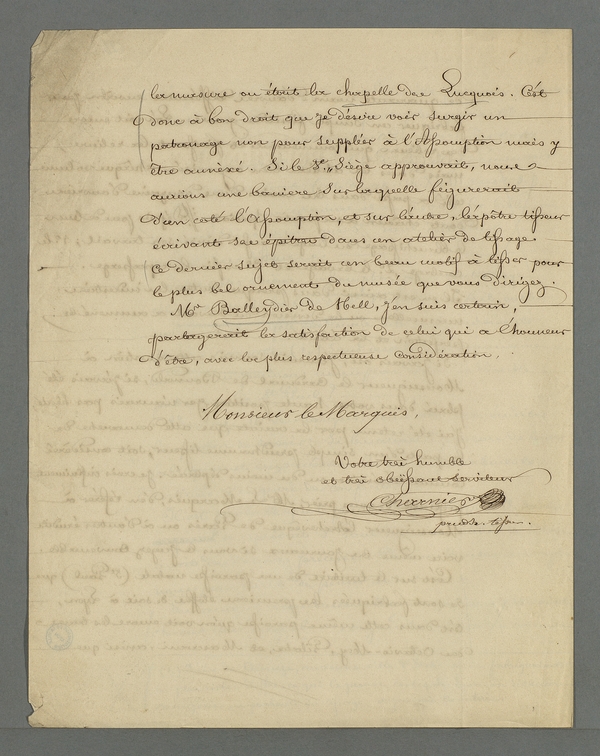 la masure ou étoit la chapelle des Lucquois. C'est
donc à bon droit que je désire voir surgir un
patronage non pour suppléer à l'Assomption mais y
être annexé. Si le St Siège approuvait, nous
aurions une baniere sur laquelle figurerait
d'un coté l'Assomption, et sur l'autre, l'apôtre tisseur
écrivant ses épitres dans un atelier de tissage.
ce dernier sujet serait un beau motif à tisser pour
le plus bel ornement du musée que vous dirigez.
Mr Balleydier de Hell, j'en suis certain,
partagerait la satisfaction de celui qui a l'honneur
d'être, avec la plus respectueuse considération,
Monsieur le Marquis,
Votre très humble
et très obéissant serviteur
Charnier
prudh. tisseur.